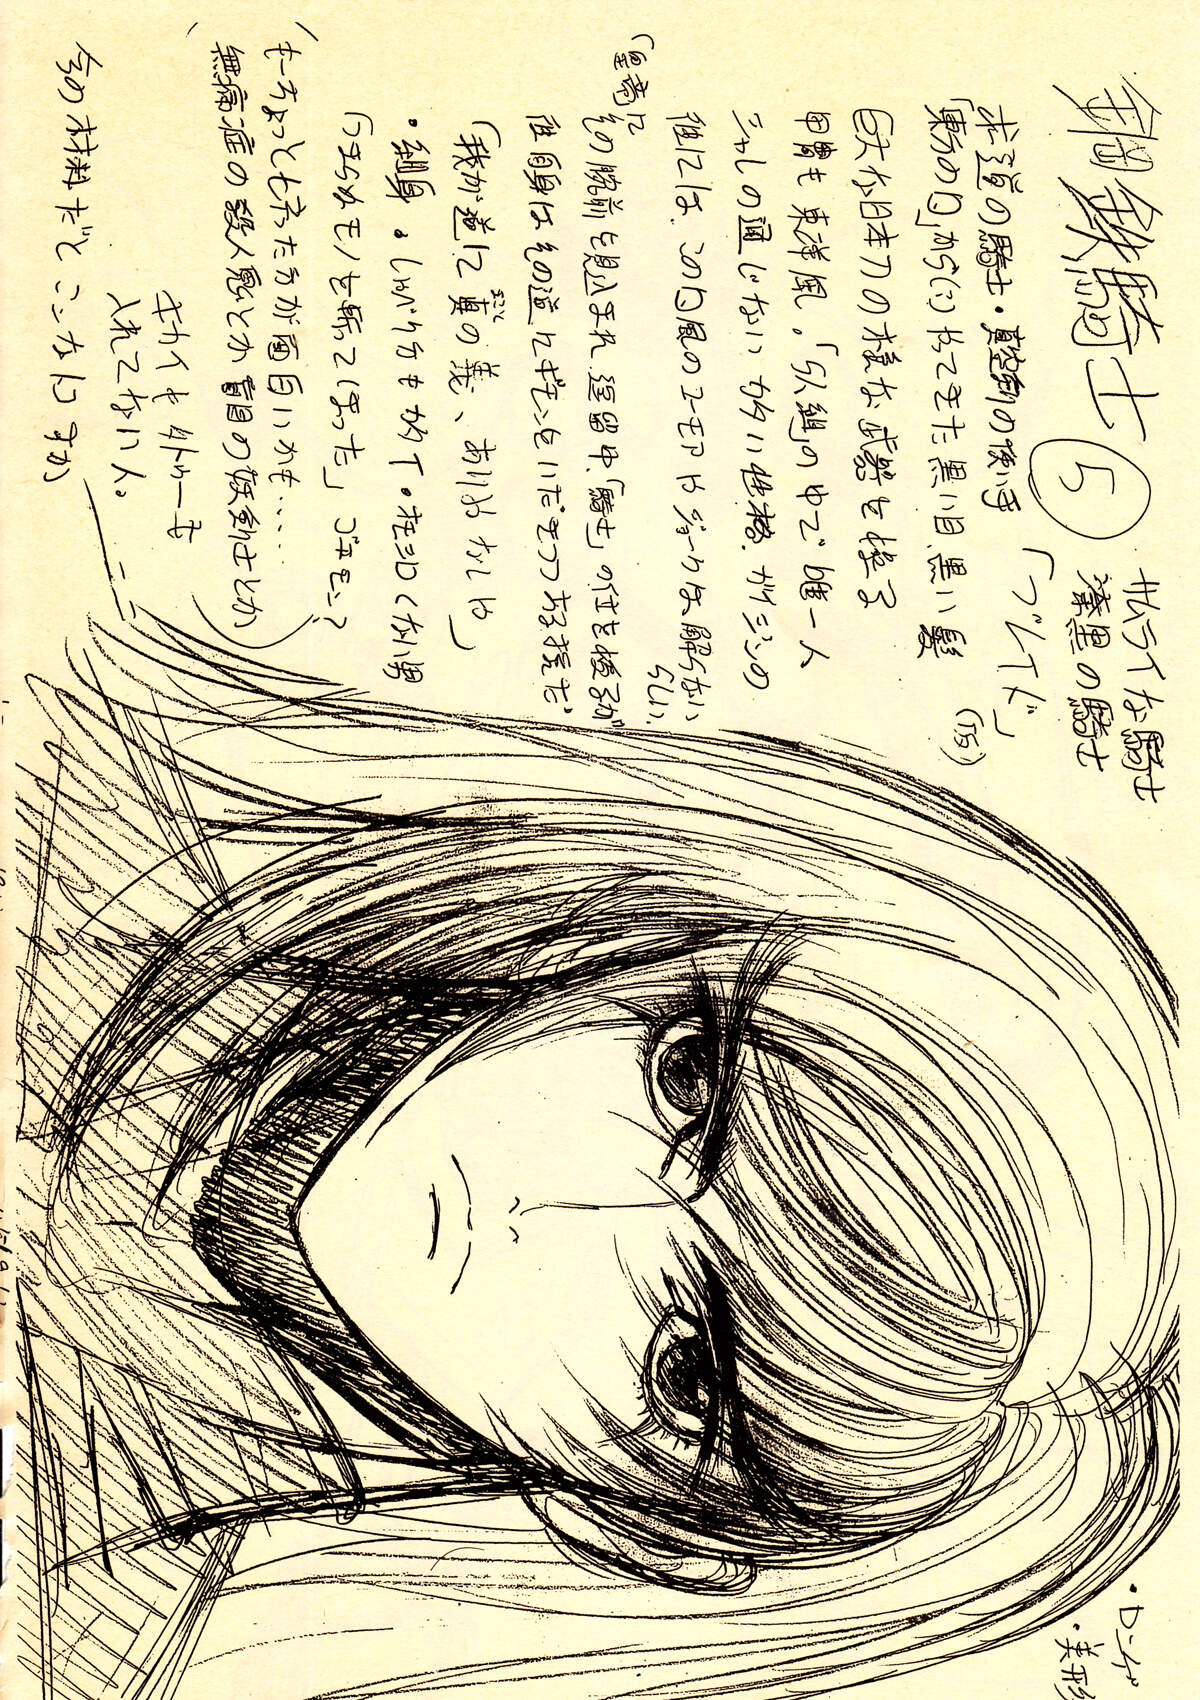 鋼鉄騎士 ⑤ サムライな騎士
漆黒の騎士
「ブレイド」
求道の騎士・真空斬の使い手
「東方の国」から(?)やってきた黒い目黒い髪
巨大な日本刀の様な武器を操る
甲冑も東洋風。「5人組」の中で唯一人
シャレの通じないカタい性格。ガイジンの
彼には、この国風のユーモアやジョークは解らない
らしい。
(皇帝に
その腕前を見込まれ逗留中、「騎士」の任を授るが
彼自身はその道にギモンをいだきつつある様だ
「我が道に真の義、ありやなしや」
・細身。しゃべり方もカタイ・オモシロくない男
「つまらぬモノを斬ってしまった」ゴエモン?
(もーちょっと った方が面白いかも・・・
無痛症の殺人鬼とか盲目の妖剣士とか)
キカイも
入れてない人。
今の材料だとこんな ですか
・ロンゲ
・美形